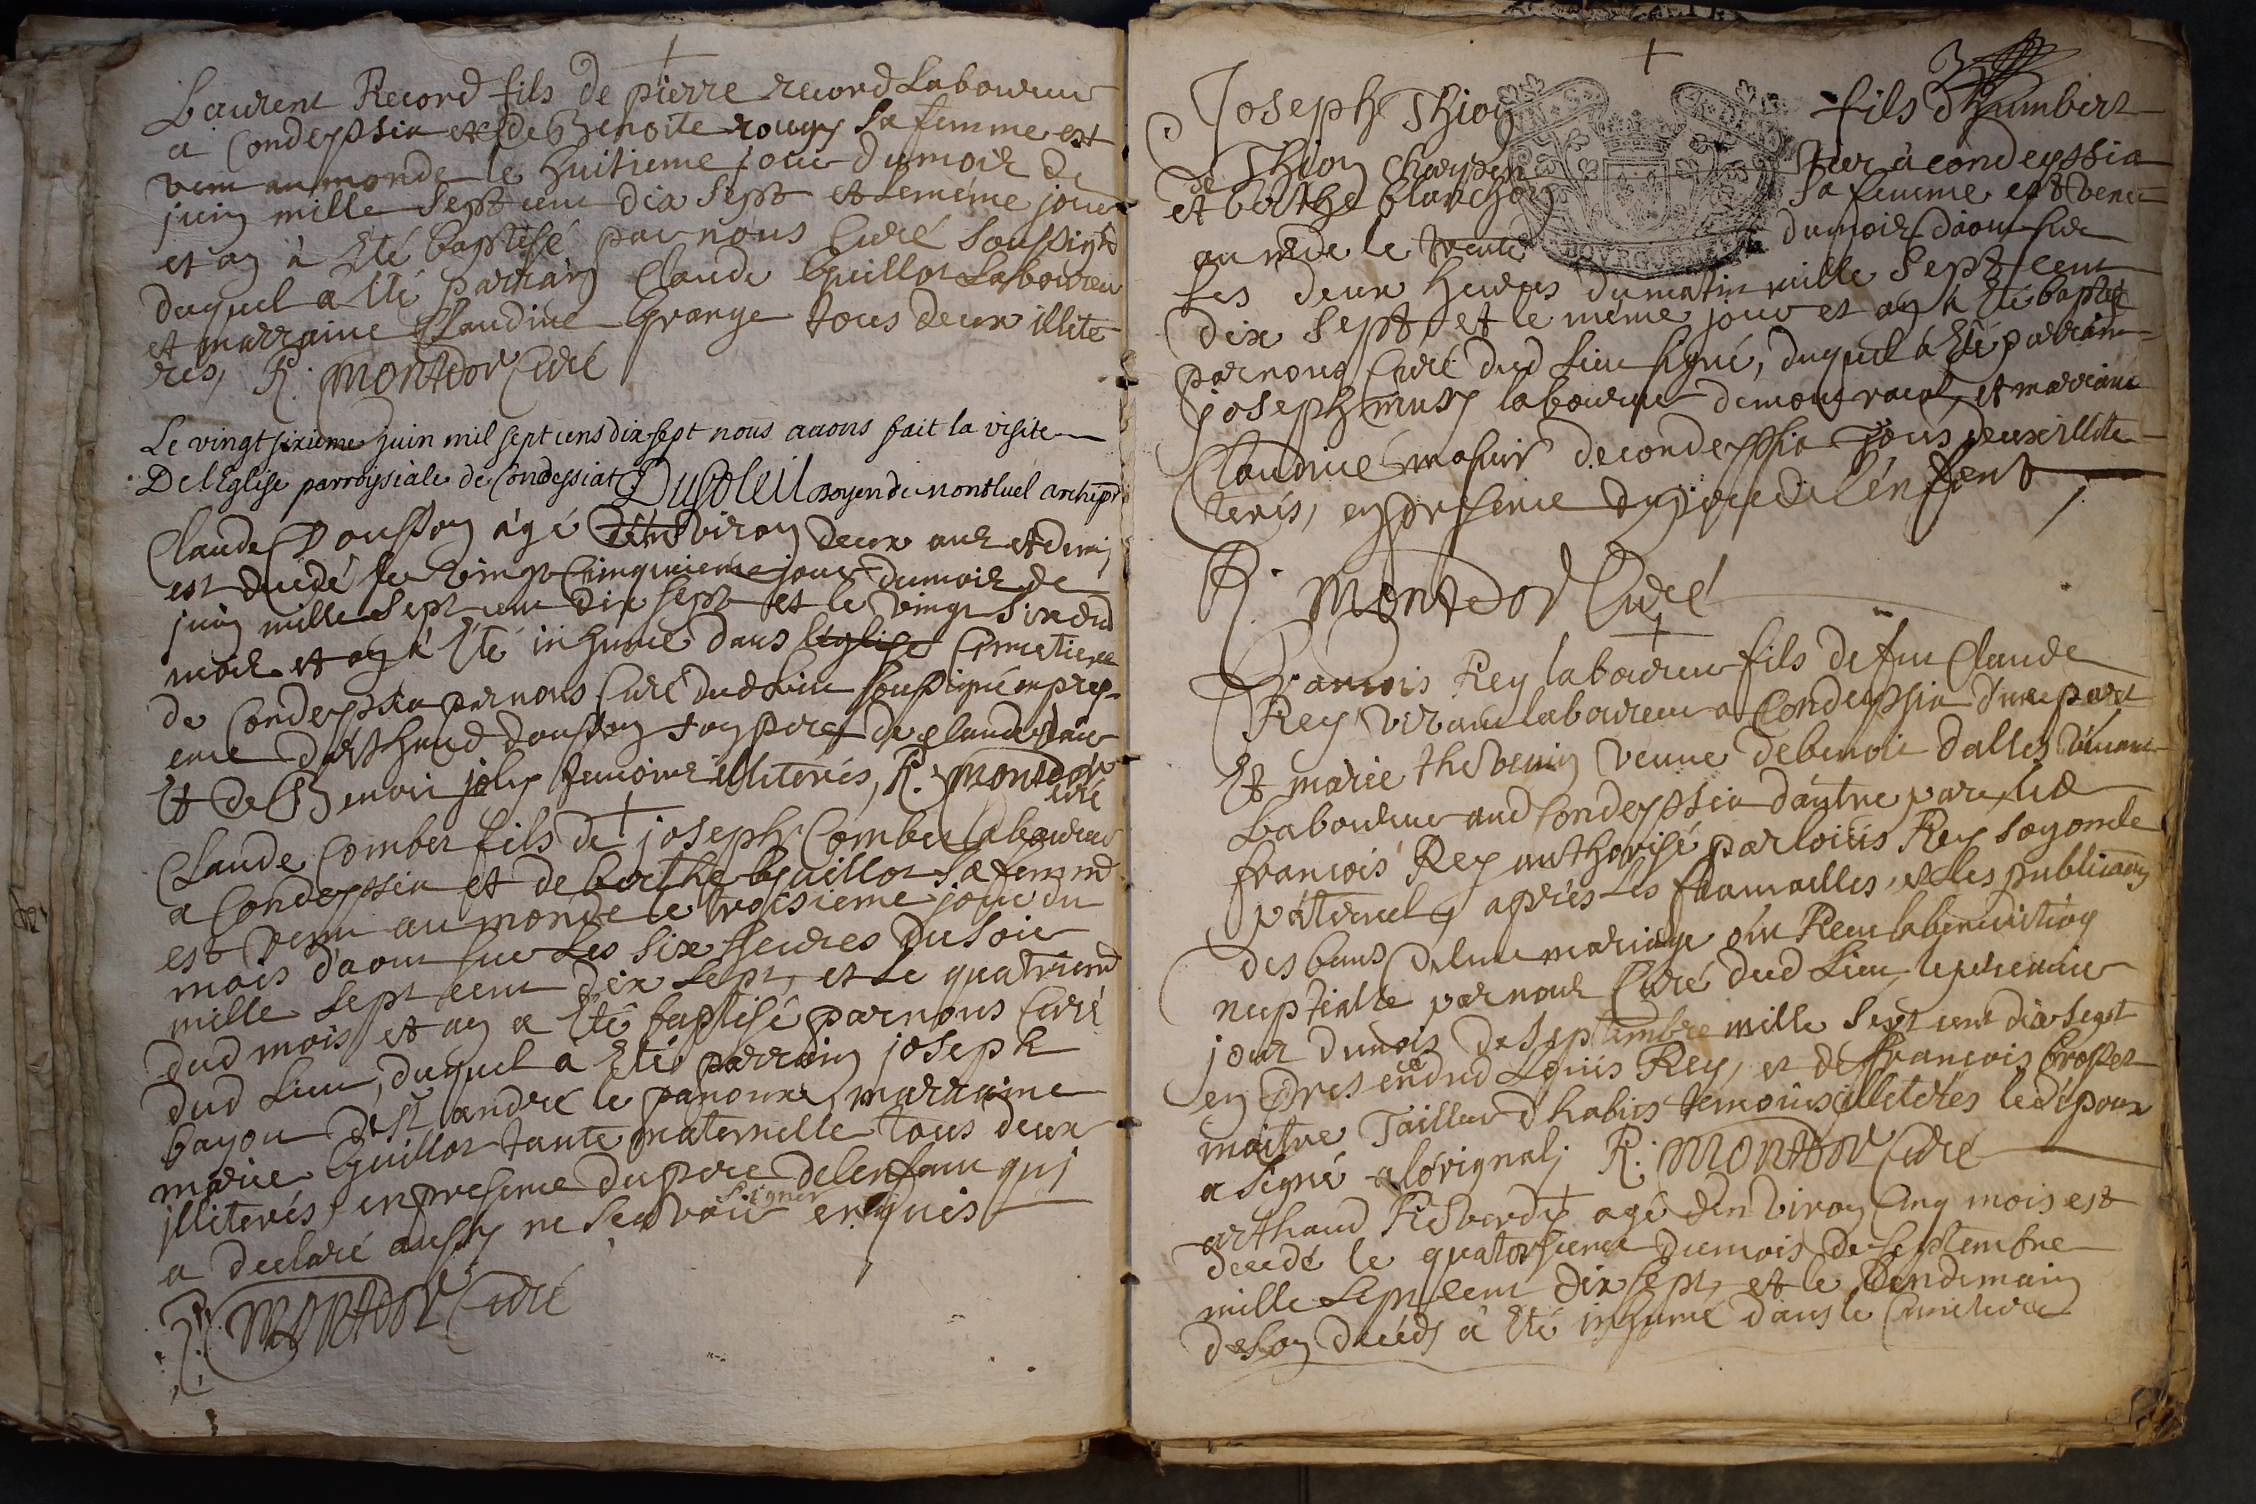 Laurent Record fils de pierre record Laboureur
a Condeyssia et de Benoite rougy Sa femme est
venu au monde le huitieme jour du mois de
juin mille sept cent dix Sept et le meme jour
et an à Eté baptisé par nous Curé Soussigné
duquel a Eté parrain Claude Guillot Laboureur
et marraine Claudine Grange tous deux illite
rés, R. Montdor Curé
Le vingt sixieme juin mil sept cens dix sept nous auons fait la visite
De l'Eglise parroissiale de Condeyssiat Dusoleil Doyen de Montluel archipr
Claude Dousson àgé d'environ deux ans et demj
est decedé le vingt Cinquieme jour du mois de
juin mille Sept cent dix sept et le vingt Six dud
mois et an à Eté inhumé dans l'eglise Cimetiere
de Condeyssia par nous Curé dud Lieu soussigné en pres-
ence d'arthaud dousson son pere de claude
Et de Benoit joly temoins illiterés, R. Montdor
curé
Claude Combet fils de joseph Combet laboureur
a Condeyssia et de berthe Guillot Sa femme
est venu au monde le troisieme jour du
mois d'aout sur Les Six heures du Soir
mille Sept cent dix Sept, et Le quatrieme
dud mois et an a Eté baptisé par nous Curé
dud Lieu, duquel a Eté parrain joseph
bayou de St andré le panoux, marraine
marie Guillot tante maternelle tous deux
jlliterés en presence du pere de lenfant qui
a declaré aussy ne Scavoir Signer enquis
R. Montdor Curé
Joseph Thion fils d'humbert
de Thion Charpen tier à condeyssia
et berthe blanchon Sa femme est venu
au mde le trente du mois d'aout sur
Les deux heures du matin mille Sept cent
dix Sept et le meme jour et an à Eté baptisé
par nous Curé dud Lieu signé, duquel à Eté parrain
joseph musy laboureur de montracol, et marraine
Claudine de condeyssia Tous deux illite
terés, en presence du pere de l'enfant
R. Montdor Curé
François Rey laboureur fils de feu Claude
Rey vivant laboureur a Condeyssia d'une part
Et marie thevenin veuve de benoit dalles vivant
Laboureur aud Condeyssia d'autre part, led
françois Rey authorisé par loüis Rey son oncle
paternel, après Les fiamailles, et les publications
des bans de leur mariage ont Receu la benediction
nuptialle par nous Curé dud Lieu le
jour du mois de Septembre mille Sept cent dix Sept
en presence dud Loüis Rey, et de françois Croset
maitre Tailleur d'habits temoins illiterés led époux
a Signé a l'original; R. Montdor Curé
arthaud Reverdy agé d'environ Cinq mois est
decedé le quatorsieme du mois de Septembre
mille Sept cent dix sept, et le Lendemain
de Son decéds à Eté inhumé dans le Cimetiere